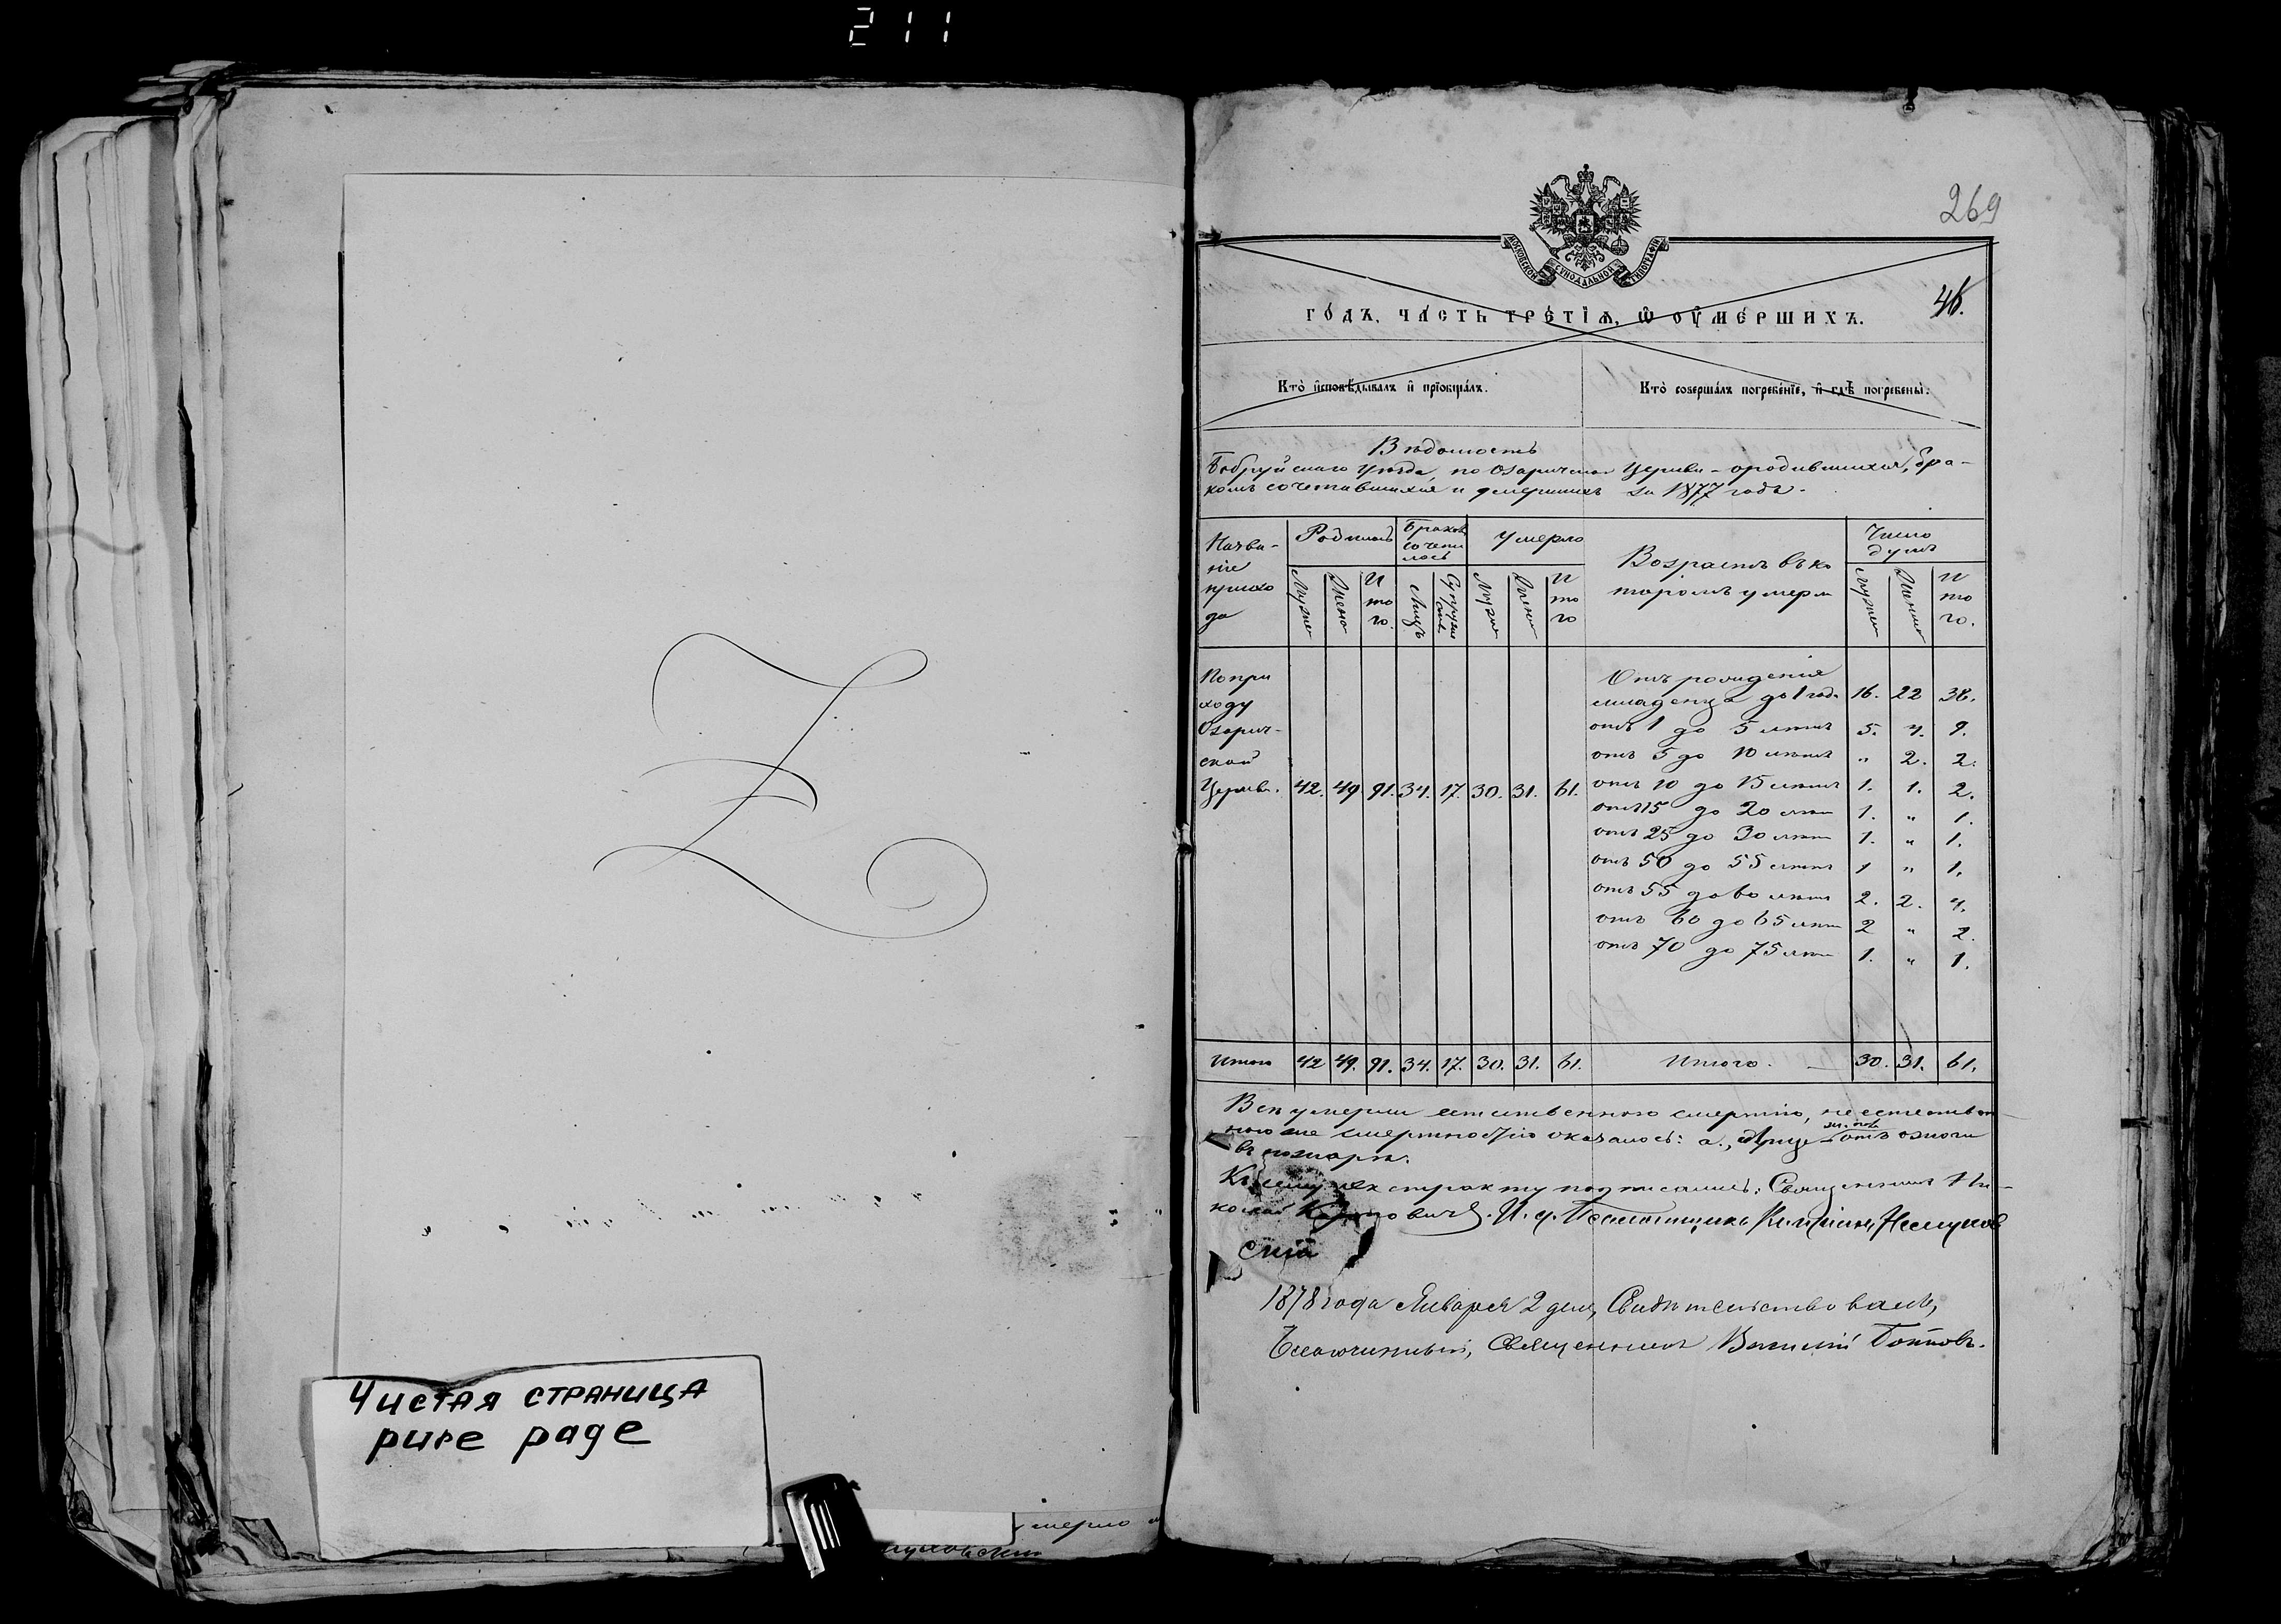 211
Чистая страница
pure page
умерло
269
МОСКОВСКОЙ СѴНОДАЛЬНОЙ ТИПОГРАФІИ
46.
ГО́ДЪ, ЧА́СТЬ ТРЕ́ТІѦ, Ѡ҆ ОУ҆МЕ́РШИХЪ.
Кто̀ и҆сповѣ́дывалъ и҆ прїобща́лъ.
Кто̀ соверша́лъ погребе́нїе, и҆ гдѣ̀ погребены̀.
Вѣдомость
Бобруйскаго Уѣзда, по Озаричской Церкви – о родившихся, бра-
комъ сочетавшихся и умершихъ за 1877 годъ.
Назва-
ніе
прихо
да
Родилось
Мужес
Женс
И
то
го.
Браковъ
сочета
лось
Лицъ
Супруже
Умерло
Мужес
Женс
И
то
го
Возрастъ въ ко
торомъ умерли
Число
душъ
Мужес
Женс
И
то
го.
По при
ходу
Озарич-
ской
Церкви. 42. 49 91. 34. 17. 30. 31. 61.
Отъ рожденія
младенца до 1 года 16. 22 38.
отъ 1 до 5 лѣтъ 5. 4. 9.
отъ 5 до 10 лѣтъ „ 2. 2.
отъ 10 до 15 лѣтъ 1. 1. 2.
отъ 15 до 20 лѣтъ 1. „ 1.
отъ 25 до 30 лѣтъ 1. „ 1.
отъ 50 до 55 лѣтъ 1 „ 1.
отъ 55 до 60 лѣтъ 2. 2. 4.
отъ 60 до 65 лѣтъ 2 „ 2.
отъ 70 до 75 лѣтъ 1. „ 1.
Итого 42 49. 91. 34. 17. 30. 31. 61. Итого. 30. 31. 61.
Всѣ умерли естественною смертію, неестествен-
ною же смертностію оказалось: а., отъ
въ пожарѣ.
Къ сему экстракту подписались: Священникъ Ни-
колай И. д. Псаломщика
скій
1878 года Января 2 дня, Свидѣтельствовалъ,
Благочинный, Священникъ Василій